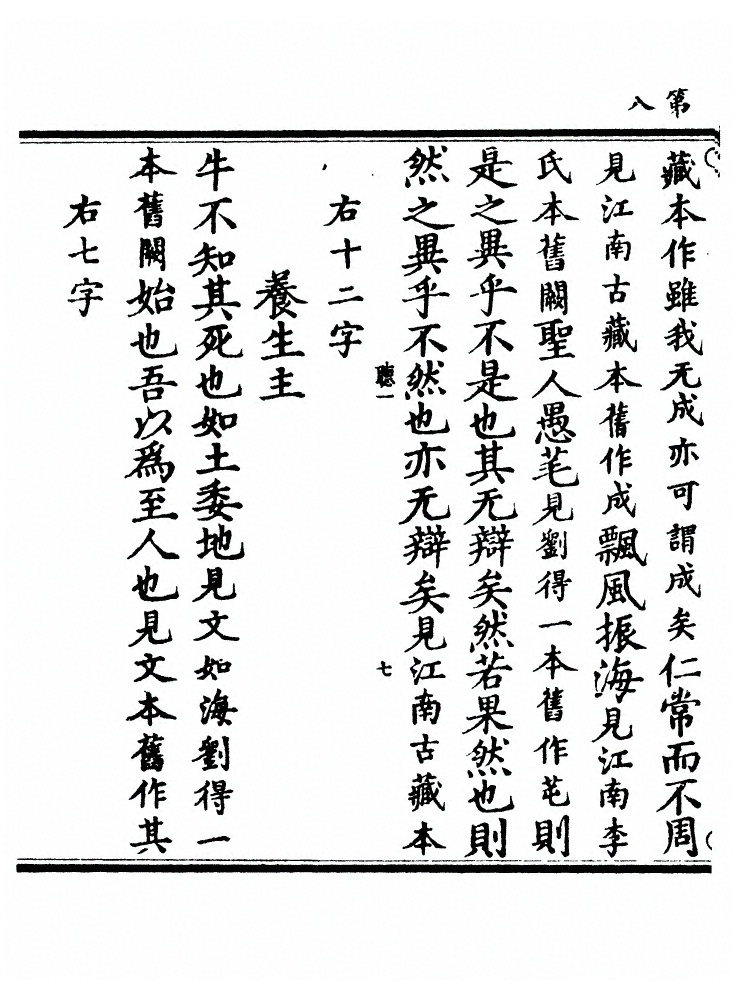 第八
藏本作雖我无成亦可謂成矣仁常而不周
見江南古藏本舊作成飄風振海見江南李
氏本舊闕聖人愚芚見劉得一本舊作芚則
是之異乎不是也其无辯矣然若果然也則
然之異乎不然也亦无辯矣見江南古藏本
聽一
七
右十二字
養生主
牛不知其死也如土委地見文如海劉得一
本舊闕始也吾以爲至人也見文本舊作其
右七字